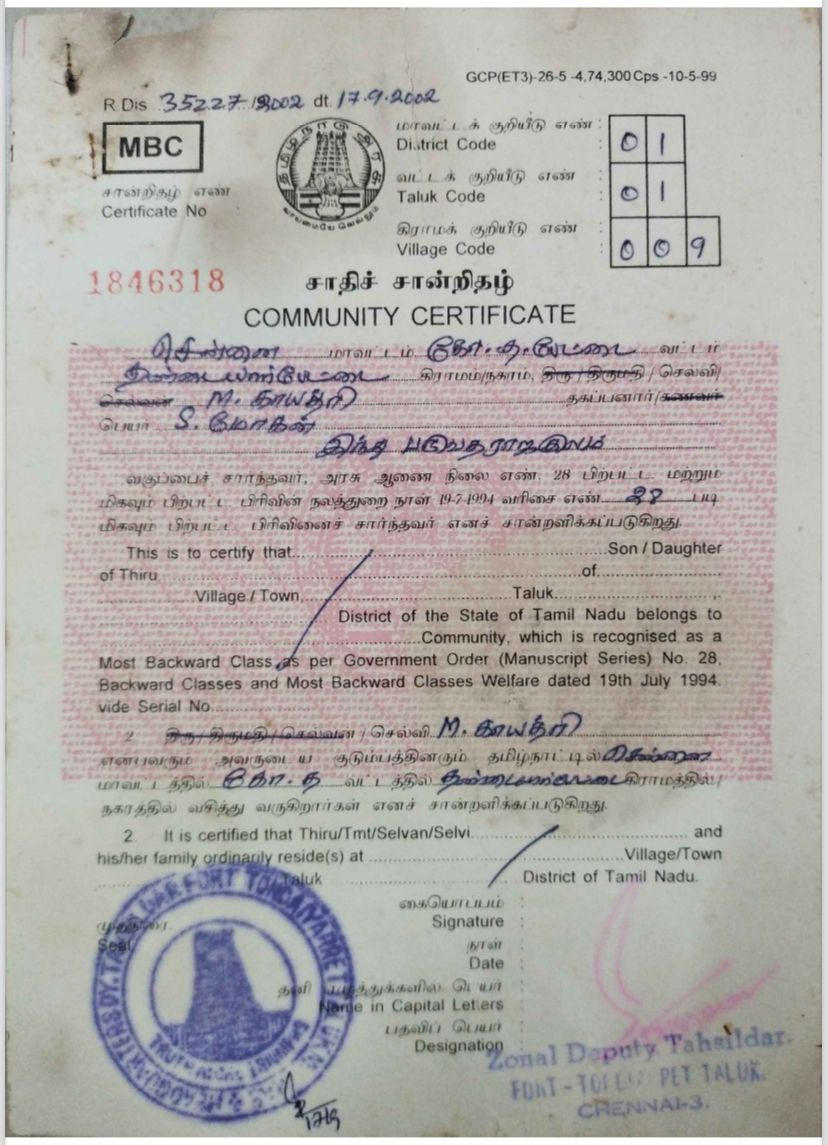 GCP(ET3)-26-5 -4,74,300 Cps -10-5-99
R.Dis 35227/2002 dt. 17.9.2002
MBC
தமிழ்நாடு அரசு
வாய்மையே வெல்லும்
மாவட்டக் குறியீடு எண் :
District Code : 01
வட்டக் குறியீடு எண் :
Taluk Code : 01
கிராமக் குறியீடு எண் :
Village Code : 009
சான்றிதழ் எண்
Certificate No
1846318
சாதிச் சான்றிதழ்
COMMUNITY CERTIFICATE
சென்னை மாவட்டம் கோ.த.பேட்டை வட்டம்
தண்டையார்பேட்டை கிராமம்/நகரம், திரு/திருமதி/செல்வி/
செல்வன் M. காயத்ரி தகப்பனார்/கணவர்
பெயர் S. மோகன்
இந்து பருவதராஜகுலம்
வகுப்பைச் சார்ந்தவர், அரசு ஆணை நிலை எண். 28 பிற்பட்ட மற்றும்
மிகவும் பிற்பட்ட பிரிவின் நலத்துறை நாள் 19-7-1994 வரிசை எண் 28 படி
மிகவும் பிற்பட்ட பிரிவினைச் சார்ந்தவர் எனச் சான்றளிக்கப்படுகிறது.
This is to certify that..........Son / Daughter
of Thiru..........of..........
Village / Town,..........Taluk..........,
..........District of the State of Tamil Nadu belongs to
..........Community, which is recognised as a
Most Backward Class as per Government Order (Manuscript Series) No. 28,
Backward Classes and Most Backward Classes Welfare dated 19th July 1994.
vide Serial No..........
2 திரு/திருமதி/செல்வன்/செல்வி M. காயத்ரி
என்பவரும் அவருடைய குடும்பத்தினரும் தமிழ்நாட்டில் சென்னை
மாவட்டத்தில் கோ.த வட்டத்தில் தண்டையார்பேட்டை கிராமத்தில்/
நகரத்தில் வசித்து வருகிறார்கள் எனச் சான்றளிக்கப்படுகிறது.
2. It is certified that Thiru/Tmt/Selvan/Selvi.......... and
his/her family ordinarily reside(s) at ..........Village/Town
..........Taluk ..........District of Tamil Nadu.
கையொப்பம் :
Signature :
முத்திரை.
Seal.
நாள் :
Date :
தனி எழுத்துக்களில் பெயர் :
Name in Capital Letters :
பதவிப் பெயர் :
Designation :
Zonal Deputy Tahsildar.
FORT - TONDIARPET TALUK,
CHENNAI-3.
17/9